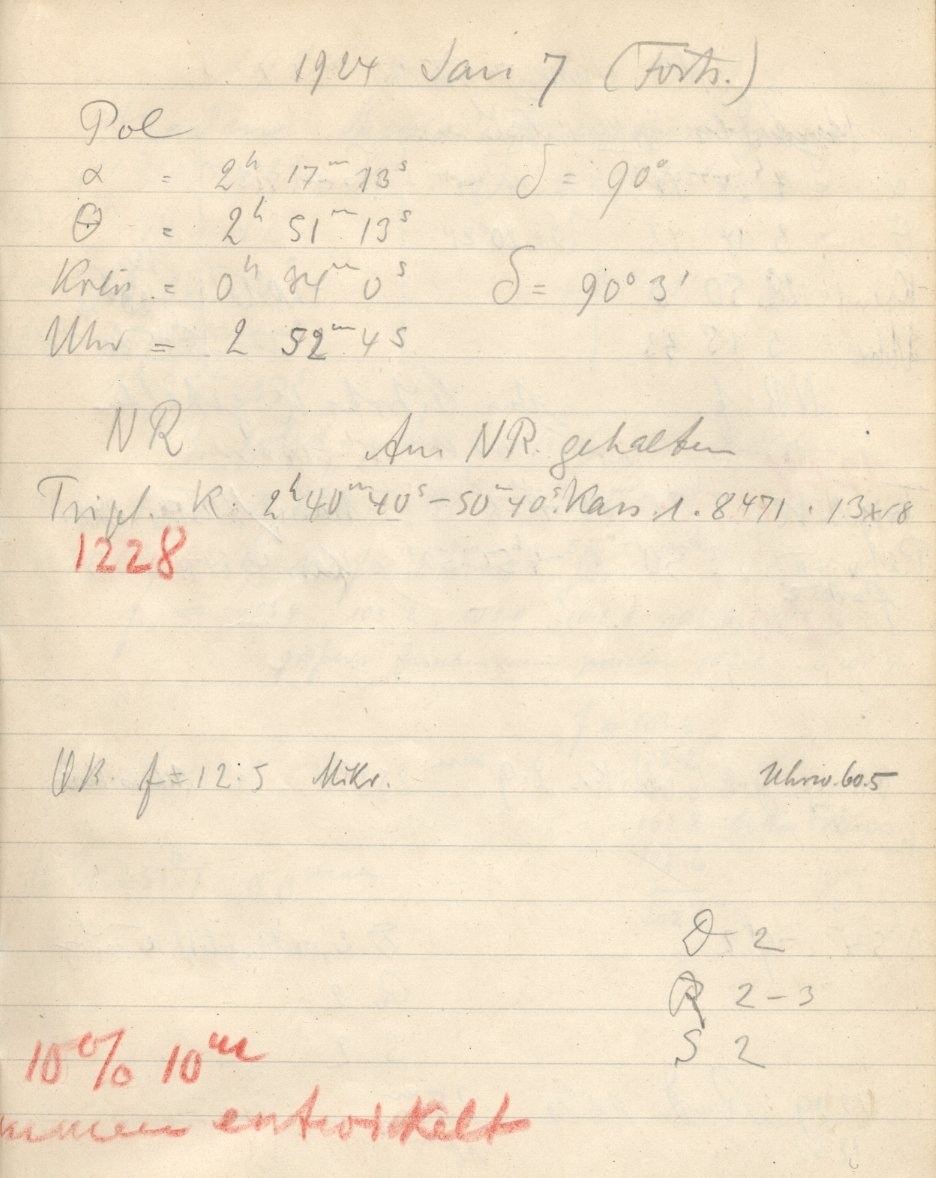 1924 Jan 7 (Forts.)
Pol
α = 2h 17m 13s δ = 90°
Θ = 2h 51m 13s
Kreis = 0h 34m 0s δ = 90° 3'
Uhr = 2 52m 45
NR Am NR. gehalten
Tripl. K. 2h 40m 40s – 50m 40s. Kass. 1. 8471 . 13x18
1228
f = 12.5 Mikr. Uhrw. 60.5
D 2
R 2–3
S 2
10% 10m
entwickelt